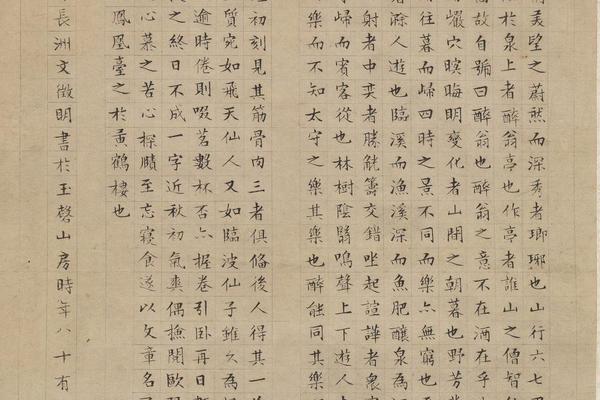 美望之蔚然而深秀者瑯琊也山行六七里
於泉上者醉翁亭也作亭者誰山之僧智
故自號曰醉翁也醉翁之意不在酒在乎
巖穴暝晦明變化者山間之朝暮也野芳
往暮而歸四時之景不同而樂亦無窮也
滁人遊也臨溪而漁溪深而魚肥釀泉為
射者中奕者勝觥籌交錯坐起諠譁者衆
歸而賓客從也林樹陰翳鳴聲上下遊人
樂而不知太守之樂其樂也醉能同其樂
初刻見其筋骨肉三者俱俻後人得其一
質宛如飛天仙人又如臨波仙子雖久為
逾時倦則啜茗數杯否亦握卷引臥再日
之終日不成一字近秋初氣爽偶撿閱歐
心慕之苦心探賾至忘寢食遂以文章名
鳳凰臺之於黃鶴樓也
長洲文徵明書於玉磬山房時年八十有